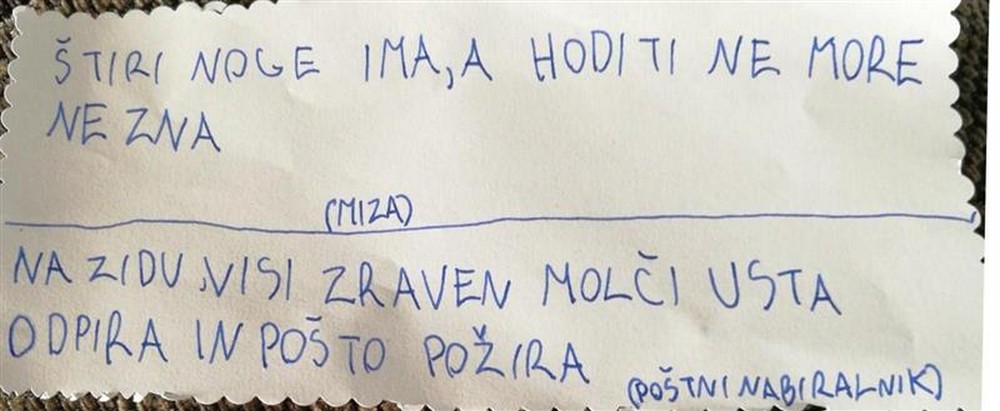 ŠTIRI NOGE IMA, A HODITI NE MORE
NE ZNA
(MIZA)
NA ZIDU VISI ZRAVEN MOLČI USTA
ODPIRA IN POŠTO POŽIRA
(POŠTNI NABIRALNIK)